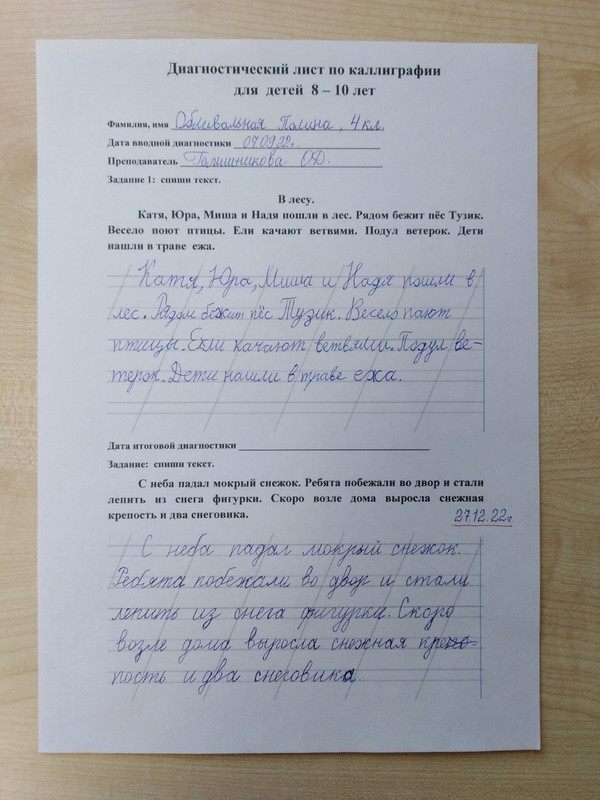 Диагностический лист по каллиграфии
для детей 8 – 10 лет
Фамилия, имя Обливальная Полина, 4 кл.
Дата вводной диагностики 04.09.22г.
Преподаватель О.Д.
Задание 1: спиши текст.
В лесу.
Катя, Юра, Миша и Надя пошли в лес. Рядом бежит пёс Тузик.
Весело поют птицы. Ели качают ветвями. Подул ветерок. Дети
нашли в траве ежа.
Катя, Юра, Миша и Надя пошли в
лес. Рядом бежит пёс Тузик. Весело пают
птицы. Ели качают ветвями. Подул ве-
терок. Дети нашли в траве ежа.
Дата итоговой диагностики
Задание: спиши текст.
С неба падал мокрый снежок. Ребята побежали во двор и стали
лепить из снега фигурки. Скоро возле дома выросла снежная
крепость и два снеговика.
27.12.22г
С неба падал мокрый снежок.
Ребята побежали во двор и стали
лепить из снега фигурки. Скоро
возле дома выросла снежная кре
пость и два снеговика.